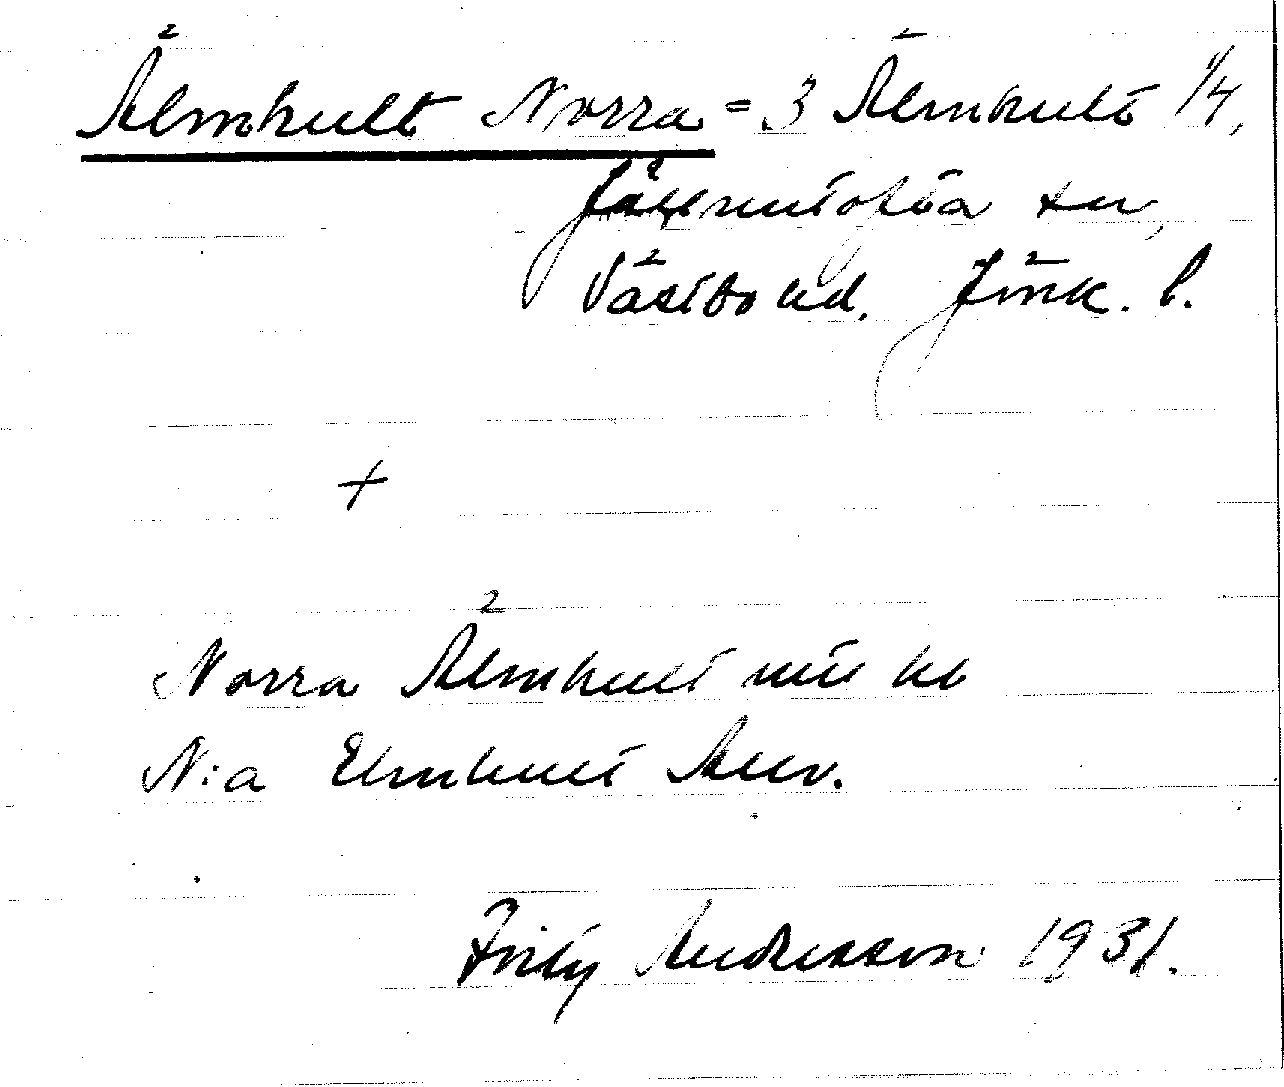 Älmhult Norra = 3 Älmhult 1/4,
Jälluntofta sn,
Västbo hd. Jönk. l.
+
Norra Älmhult
N:a Elmhult
Fritz Andersson 1931.